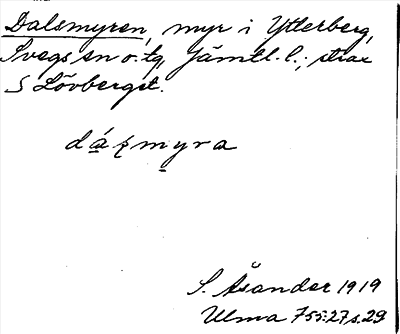 Dalsmyren, myr i Ytterberg,
Svegs sn o. tg, Jämtl. l.; strax
S Lövberget.
dáʐmyra
S. Åsander 1919
Ulma 755:27 s. 29